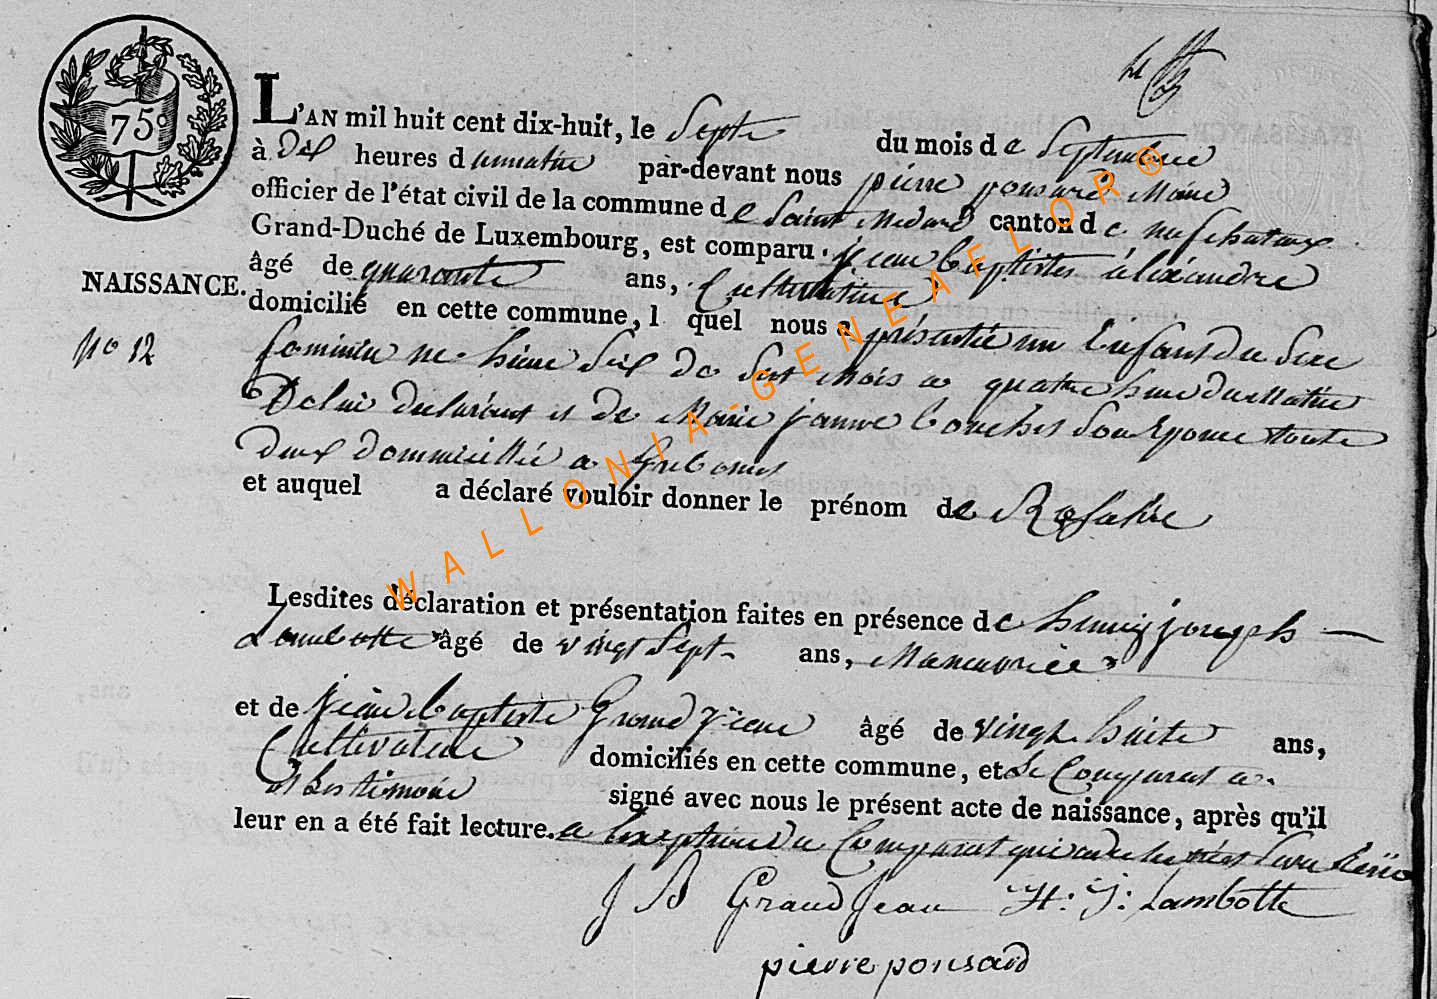 75c
L'AN mil huit cent dix-huit, le Septe du mois de Septembre
à Dix heures dumatin par-devant nous pierre ponsard Maire
officier de l'état civil de la commune de Saint Medard canton de nufchataux
Grand-Duché de Luxembourg, est comparu jean baptiste alixandre
âgé de quarante ans, Cultivateur
NAISSANCE.
domicilié en cette commune, l quel nous a présentée un Enfant du Sexe
no 12
feminin ne hier Six de Set Mois a quatre heure du Matin
De lui declarant et de Marie janne bouchet Son Epouse toute
deux dommicillié a
et auquel a déclaré vouloir donner le prénom de Rosalie
Lesdites déclaration et présentation faites en présence de henry joseph
Lambotte âgé de vingt Sept ans, Manuvrier
et de jean baptiste Grand jean âgé de vingt huite ans,
Cultivateur domiciliés en cette commune, et Le Comparat a
et les timoin signé avec nous le présent acte de naissance, après qu'il
leur en a été fait lecture. a lexception du Comparat qui a de
J B Grand Jean H: J: Lambotte
pierre ponsard
WALLONIA-GENEAFLOR®